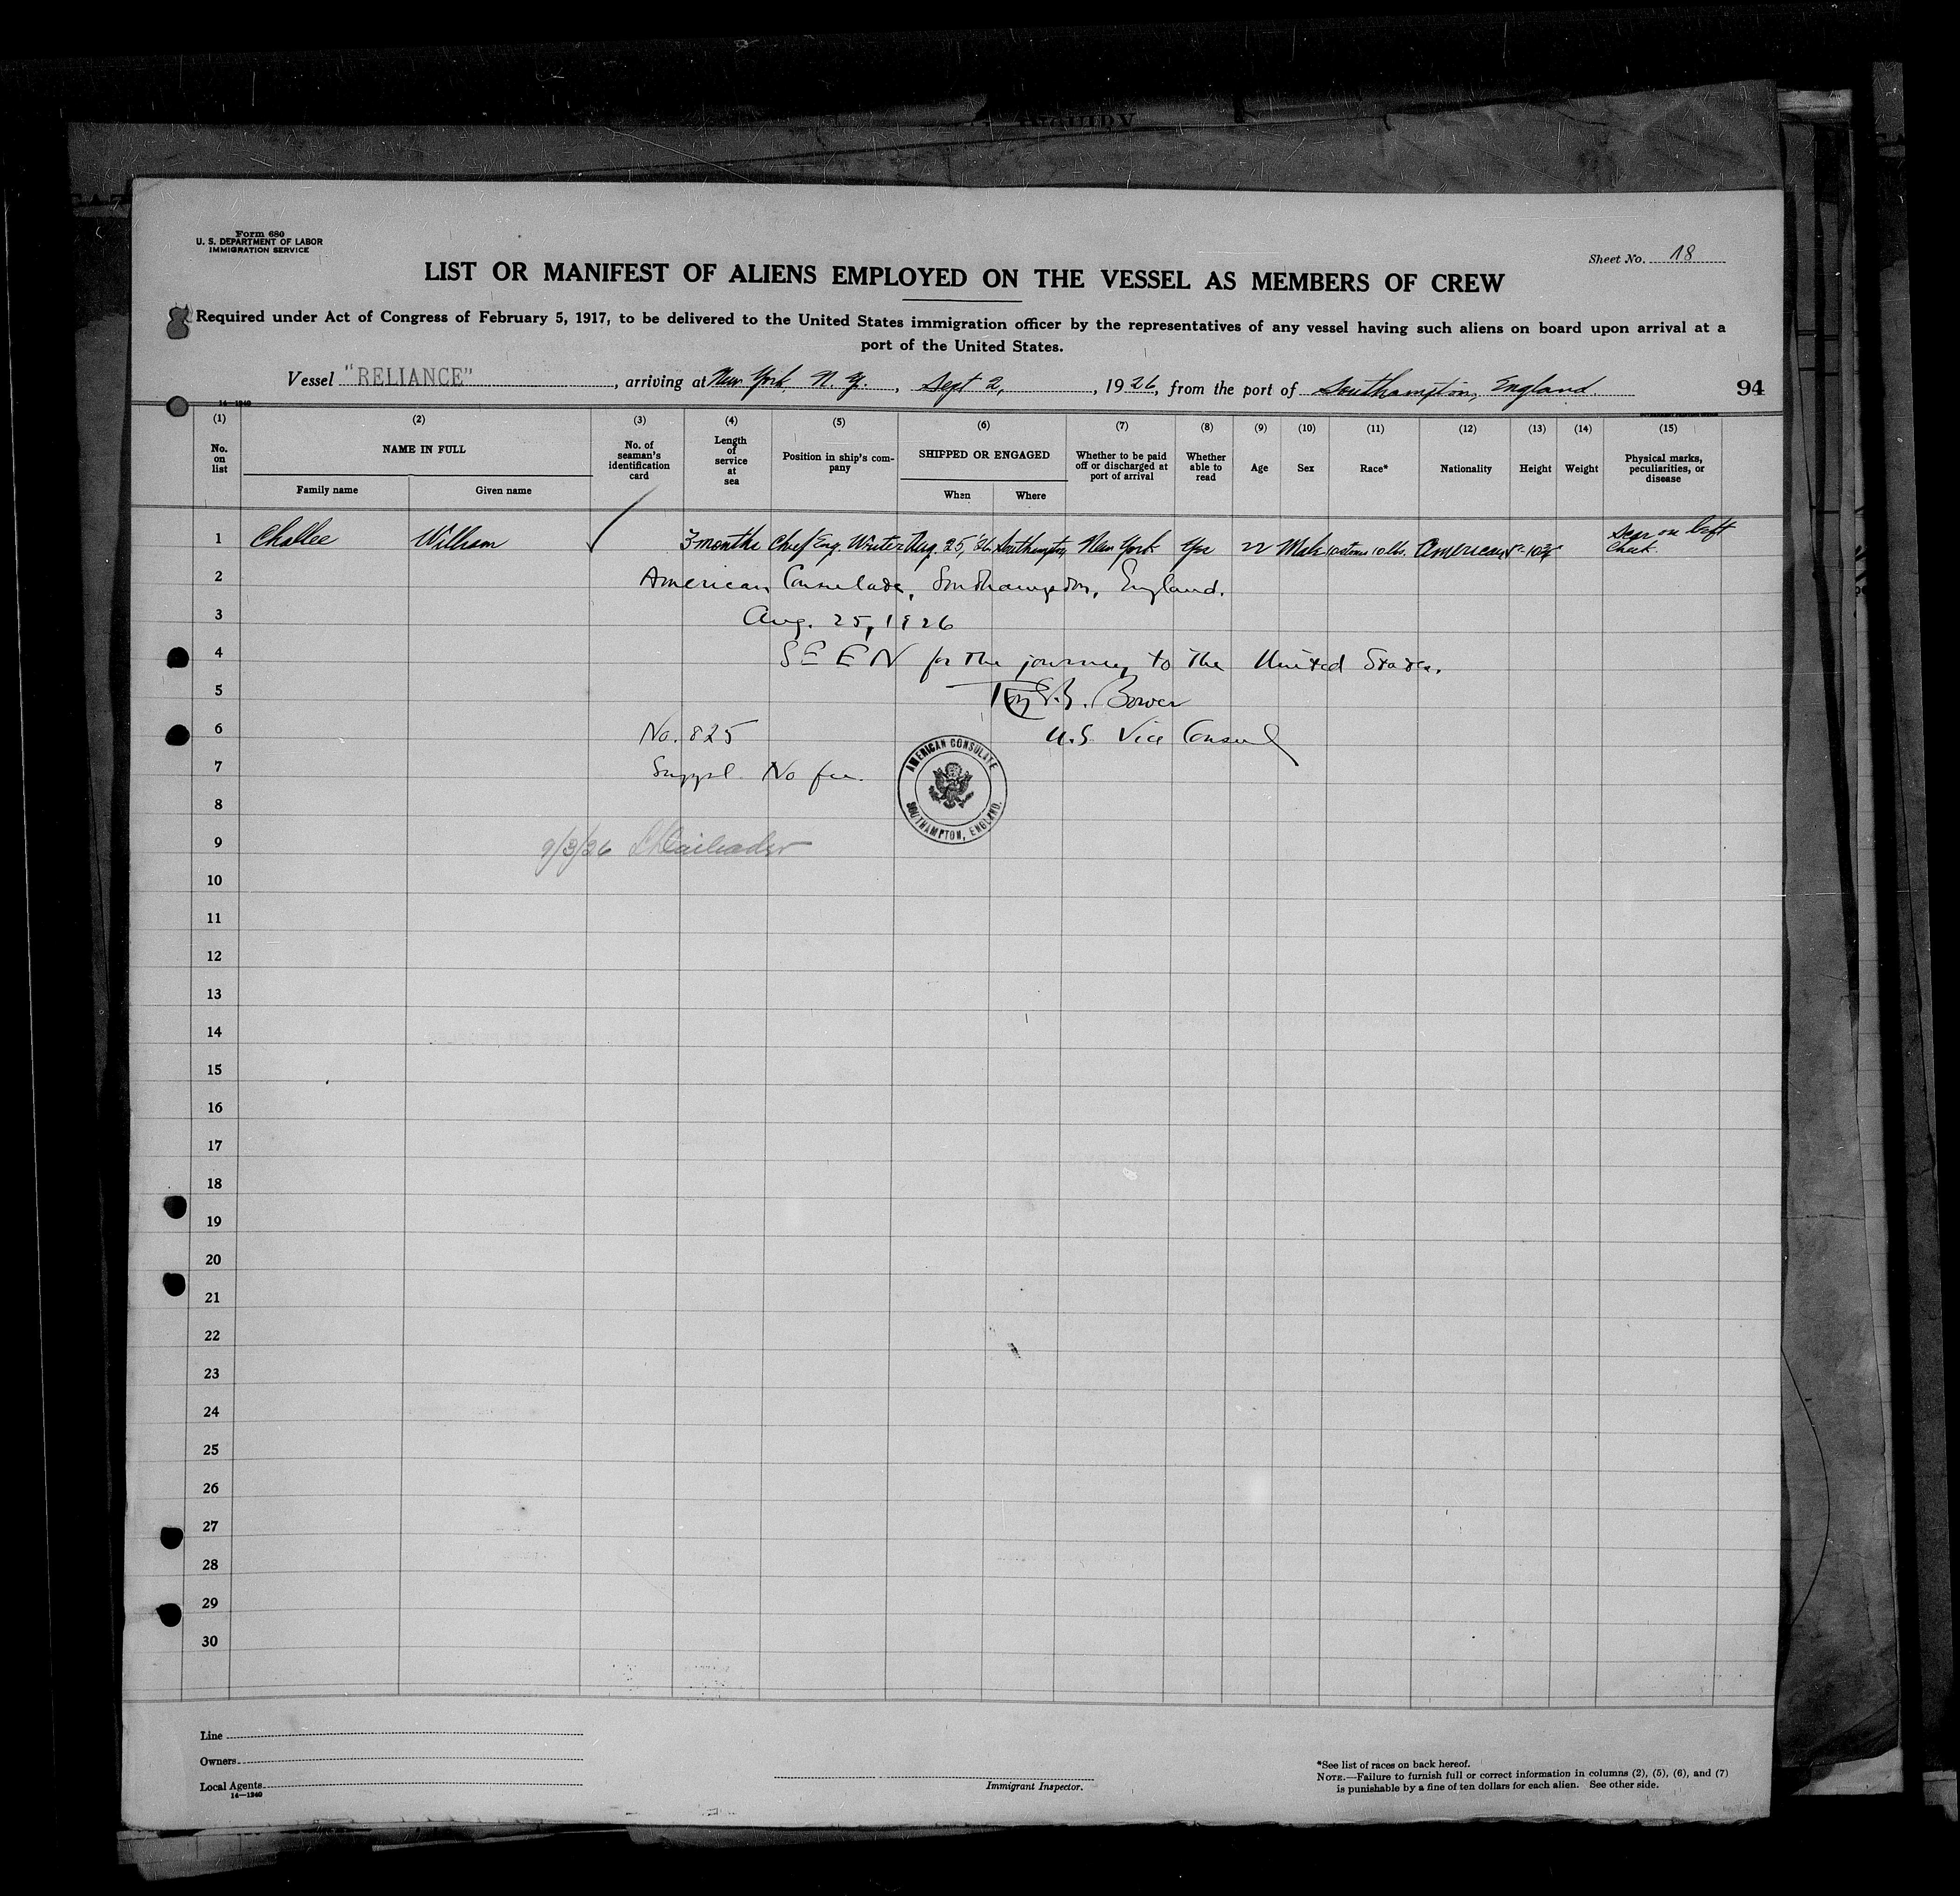 Form 680
U. S. DEPARTMENT OF LABOR
IMMIGRATION SERVICE
Sheet No. 18
LIST OR MANIFEST OF ALIENS EMPLOYED ON THE VESSEL AS MEMBERS OF CREW
Required under Act of Congress of February 5, 1917, to be delivered to the United States immigration officer by the representatives of any vessel having such aliens on board upon arrival at a
port of the United States.
Vessel "RELIANCE", arriving at New York N. Y., Sept 2, 1926, from the port of Southampton, England.
94
14—1240
(1) (2) (3) (4) (5) (6) (7) (8) (9) (10) (11) (12) (13) (14) (15)
No. on list
NAME IN FULL
Family name
Given name
No. of seaman's identification card
Length of service at sea
Position in ship's company
SHIPPED OR ENGAGED
When
Where
Whether to be paid off or discharged at port of arrival
Whether able to read
Age
Sex
Race*
Nationality
Height
Weight
Physical marks, peculiarities, or disease
1 Challee William 3 months Chief Eng. Writer Aug. 25, '26 Southampton New York Yes 22 Male 10 stone 10 lbs. American 5'-10¾" Scar on left cheek.
2 American Consulate, Southampton, England.
3 Aug. 25, 1926
4 SEEN for the journey to the United States.
5 Roy E. B. Bower
6 No. 825 U.S. Vice Consul
7 Suppl. No fee.
AMERICAN CONSULATE
SOUTHAMPTON, ENGLAND.
8
9 9/3/26
10
11
12
13
14
15
16
17
18
19
20
21
22
23
24
25
26
27
28
29
30
Line
Owners
Local Agents
14—1240
Immigrant Inspector.
*See list of races on back hereof.
NOTE.—Failure to furnish full or correct information in columns (2), (5), (6), and (7)
is punishable by a fine of ten dollars for each alien. See other side.